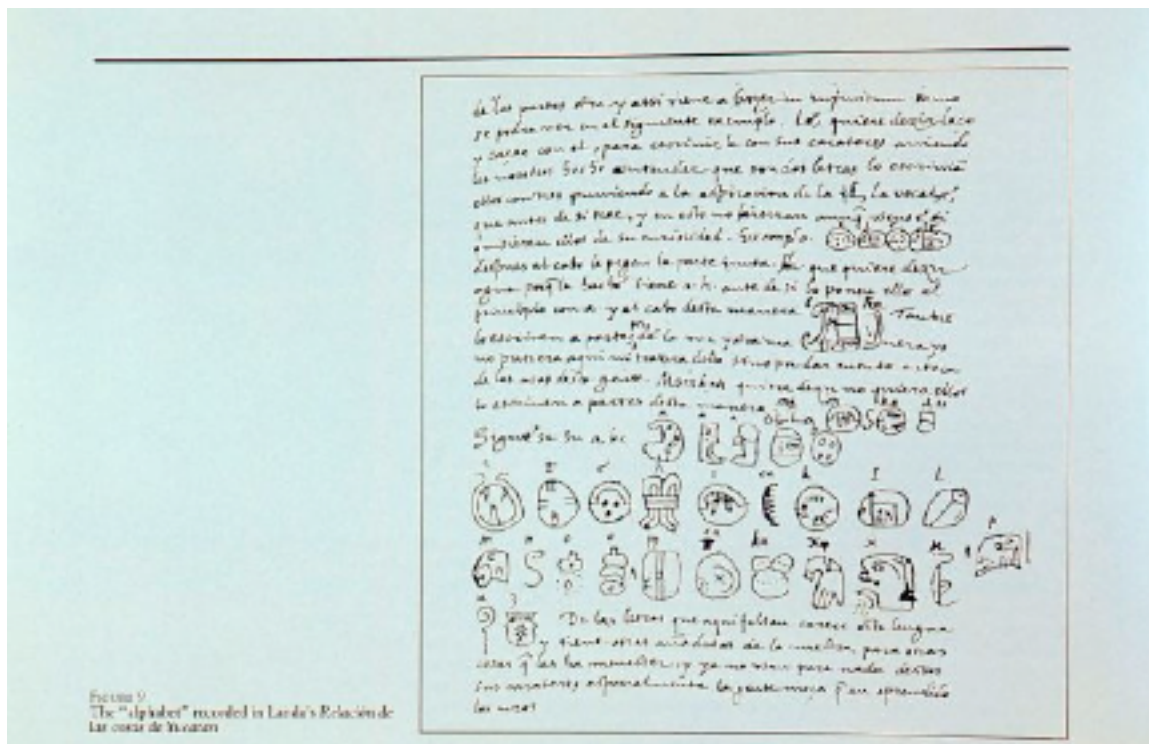 de las partes otra y assi viene a hazer in infinitum como
se podra ver en el siguiente exemplo. Lé, quiere dezir laço
y caçar con el, para escrivirle con sus carateres aviendo
les nosotros hecho entender que son dos letras lo escrivian
ellos con tres puniendo a la aspiracion de la l, la vocal é,
que antes de si trae, y en esto no hierran
ellos de su curiosidad. Exemplo.
despues al cabo le pegan la parte junta. Ha que quiere dezir
agua porq la haché tiene a. h. ante de si la ponen ellos al
principio con a y al cabo desta manera Tambie
lo escriven a partes de la una y otra ma nera yo
no pusiera aqui ni tratara dello sino por dar cuenta entera
de las cosas desta gente. Mainkati quiere dezir no quiero ellos
lo escriven a partes desta manera
ma i n ka ti
Siguese su a b c
a a a b b
c t é h i ca k l l
m n o o pp p
p cu ku x x u
u z
De las letras que aqui faltan carece esta lengua
y tiene otras añadidas de la nuestra para otras
cosas q las ha menester, y ya no usan para nada destos
sus carateres especialmente la gente moça q an aprendido
los nros
FIGURE 9
The "alphabet" recorded in Landa's Relación de
las cosas de Yucatan